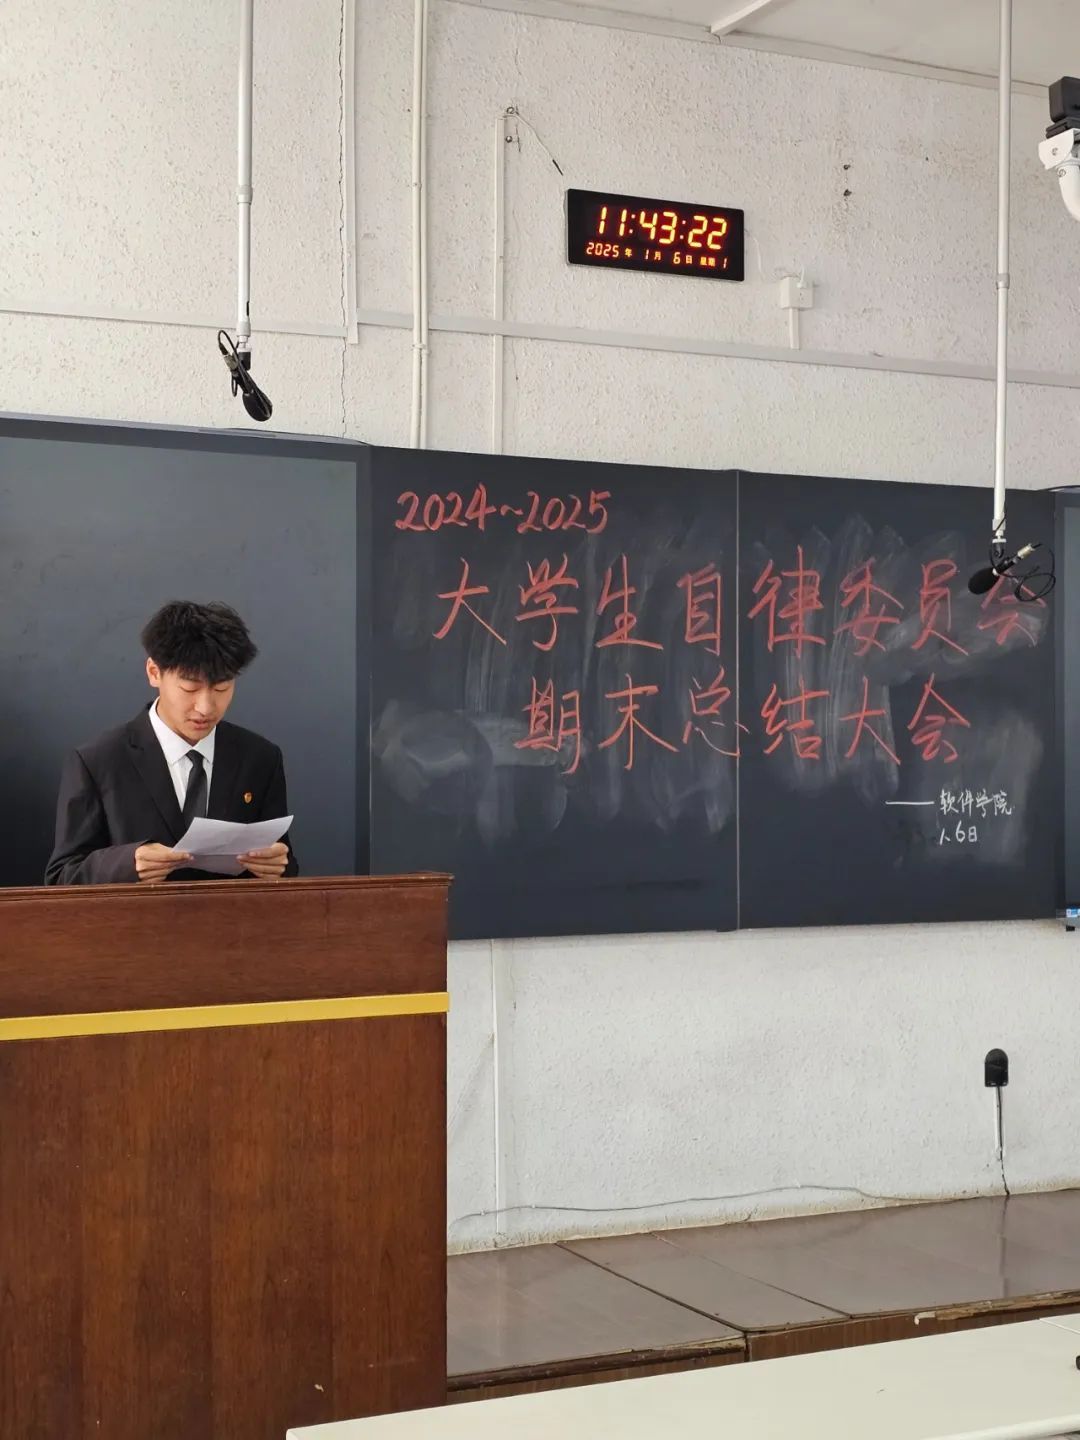 11:43:22
2025年 1月 6日 星期 1
2024~2025
大学生自律委员会
期末总结大会
——软件学院
1、6日